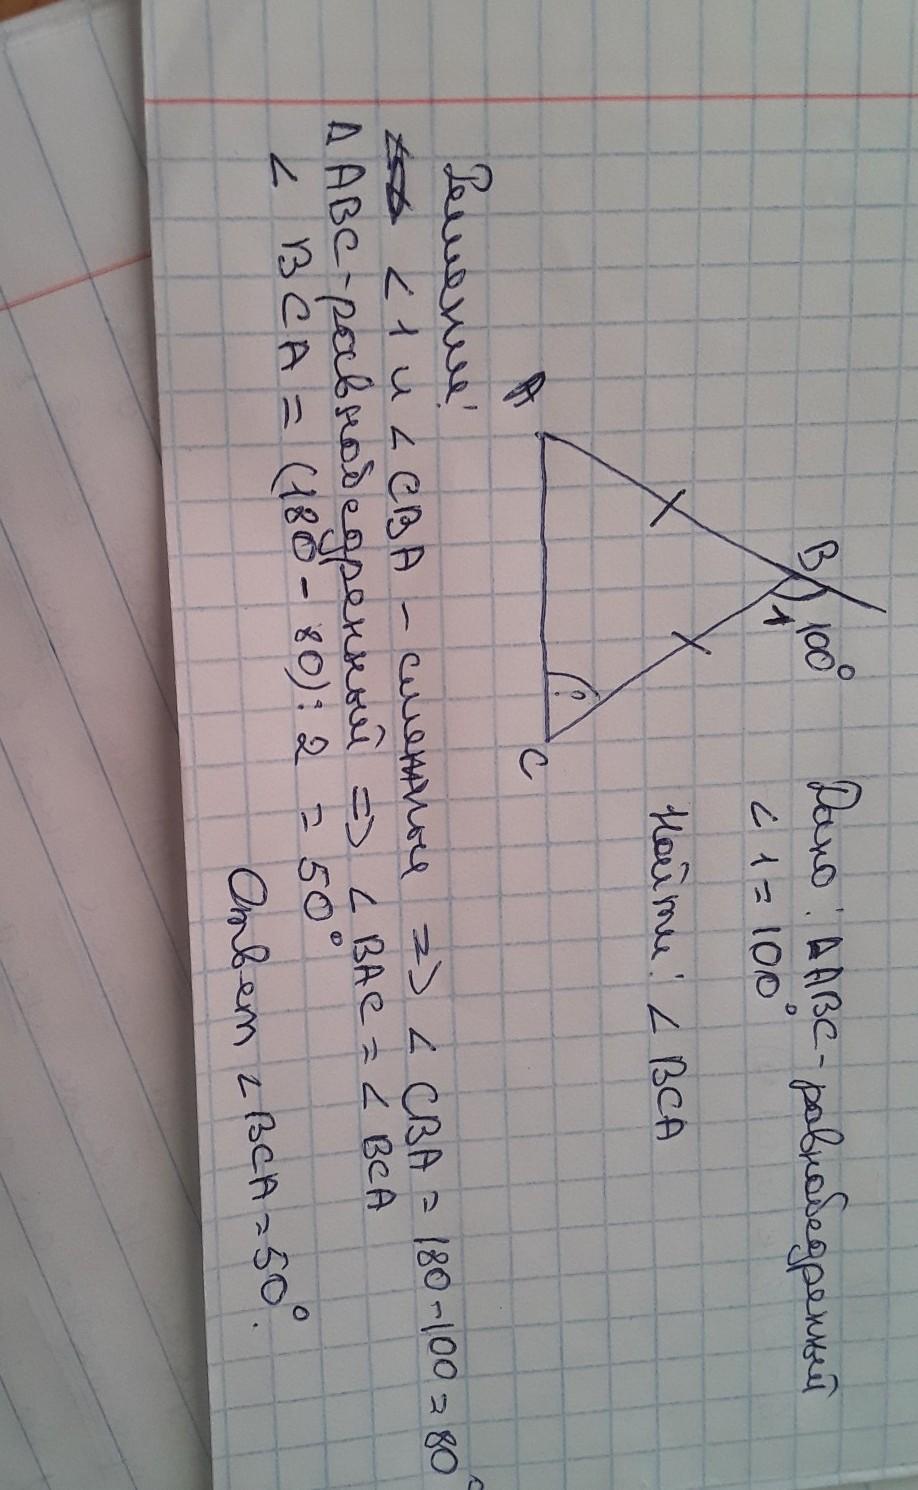 Дано: ΔABC - равнобедренный
∠1 = 100°
Найти: ∠BCA
B
100°
1
A
C
?
Решение:
∠1 и ∠CBA - смежные => ∠CBA = 180-100 = 80°
ΔABC - равнобедренный => ∠BAC = ∠BCA
∠BCA = (180 - 80) : 2 = 50°
Ответ ∠BCA = 50°.